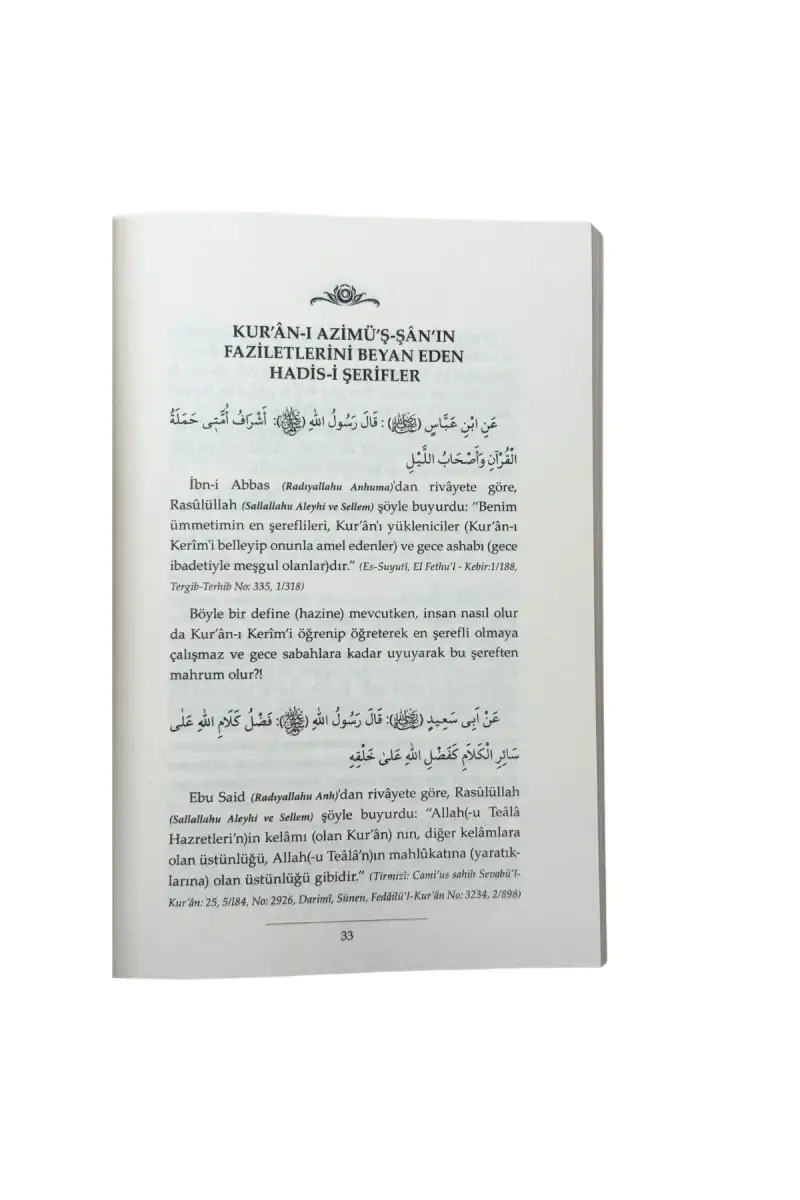 KUR'ÂN-I AZİMÜ'Ş-ŞÂN'IN
FAZİLETLERİNİ BEYAN EDEN
HADİS-İ ŞERİFLER
عَنِ ابْنِ عَبَّاسٍ (ﷺ) : قَالَ رَسُولُ اللهِ (ﷺ): أَشْرَافُ أُمَّتِى حَمَلَةُ
الْقُرْآنِ وَأَصْحَابُ اللَّيْلِ
İbn-i Abbas (Radıyallahu Anhuma)'dan rivâyete göre,
Rasûlüllah (Sallallahu Aleyhi ve Sellem) şöyle buyurdu: "Benim
ümmetimin en şereflileri, Kur'ân'ı yükleniciler (Kur'ân-ı
Kerîm'i belleyip onunla amel edenler) ve gece ashabı (gece
ibadetiyle meşgul olanlar)dır." (Es-Suyutî, El Fethu'l - Kebir:1/188,
Tergib-Terhib No: 335, 1/318)
Böyle bir define (hazine) mevcutken, insan nasıl olur
da Kur'ân-ı Kerîm'i öğrenip öğreterek en şerefli olmaya
çalışmaz ve gece sabahlara kadar uyuyarak bu şereften
mahrum olur?!
عَنْ اَبِى سَعِيدٍ (ﷺ): قَالَ رَسُولُ اللهِ (ﷺ): فَضْلُ كَلَامِ اللهِ عَلَى
سَائِرِ الْكَلَامِ كَفَضْلِ اللهِ عَلىٰ خَلْقِهِ
Ebu Said (Radıyallahu Anh)'dan rivâyete göre, Rasûlüllah
(Sallallahu Aleyhi ve Sellem) şöyle buyurdu: "Allah(-u Teâlâ
Hazretleri'n)in kelâmı (olan Kur'ân) nın, diğer kelâmlara
olan üstünlüğü, Allah(-u Teâlâ'n)ın mahlûkatına (yaratık-
larına) olan üstünlüğü gibidir." (Tirmizî: Cami'us sahih Sevabü'l-
Kur'ân: 25, 5/184, No: 2926, Darimî, Sünen, Fedâilü'l-Kur'ân No: 3234, 2/898)
33